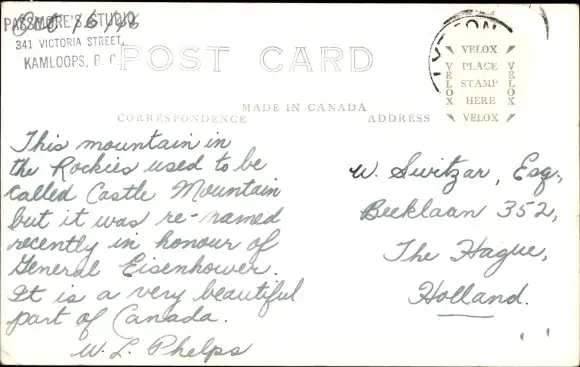 PASSMORE'S STUDIO
341 VICTORIA STREET,
KAMLOOPS, B. C.
POST CARD
MADE IN CANADA
CORRESPONDENCE
ADDRESS
LYTTON
VELOX
VELOX
PLACE
STAMP
HERE
VELOX
VELOX
This mountain in
the Rockies used to be
called Castle Mountain
but it was re-named
recently in honour of
General Eisenhower.
It is a very beautiful
part of Canada.
W. L. Phelps
W. Switzar, Esq,
Beeklaan 352,
The Hague,
Holland.